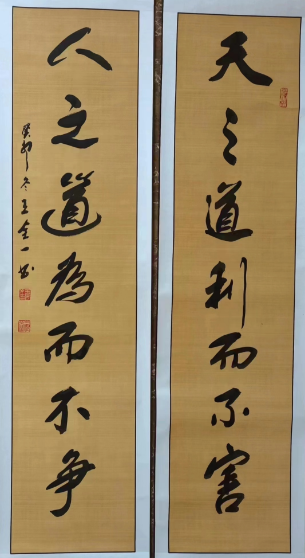 天之道利而不害
人之道為而不争
癸卯冬王金一书